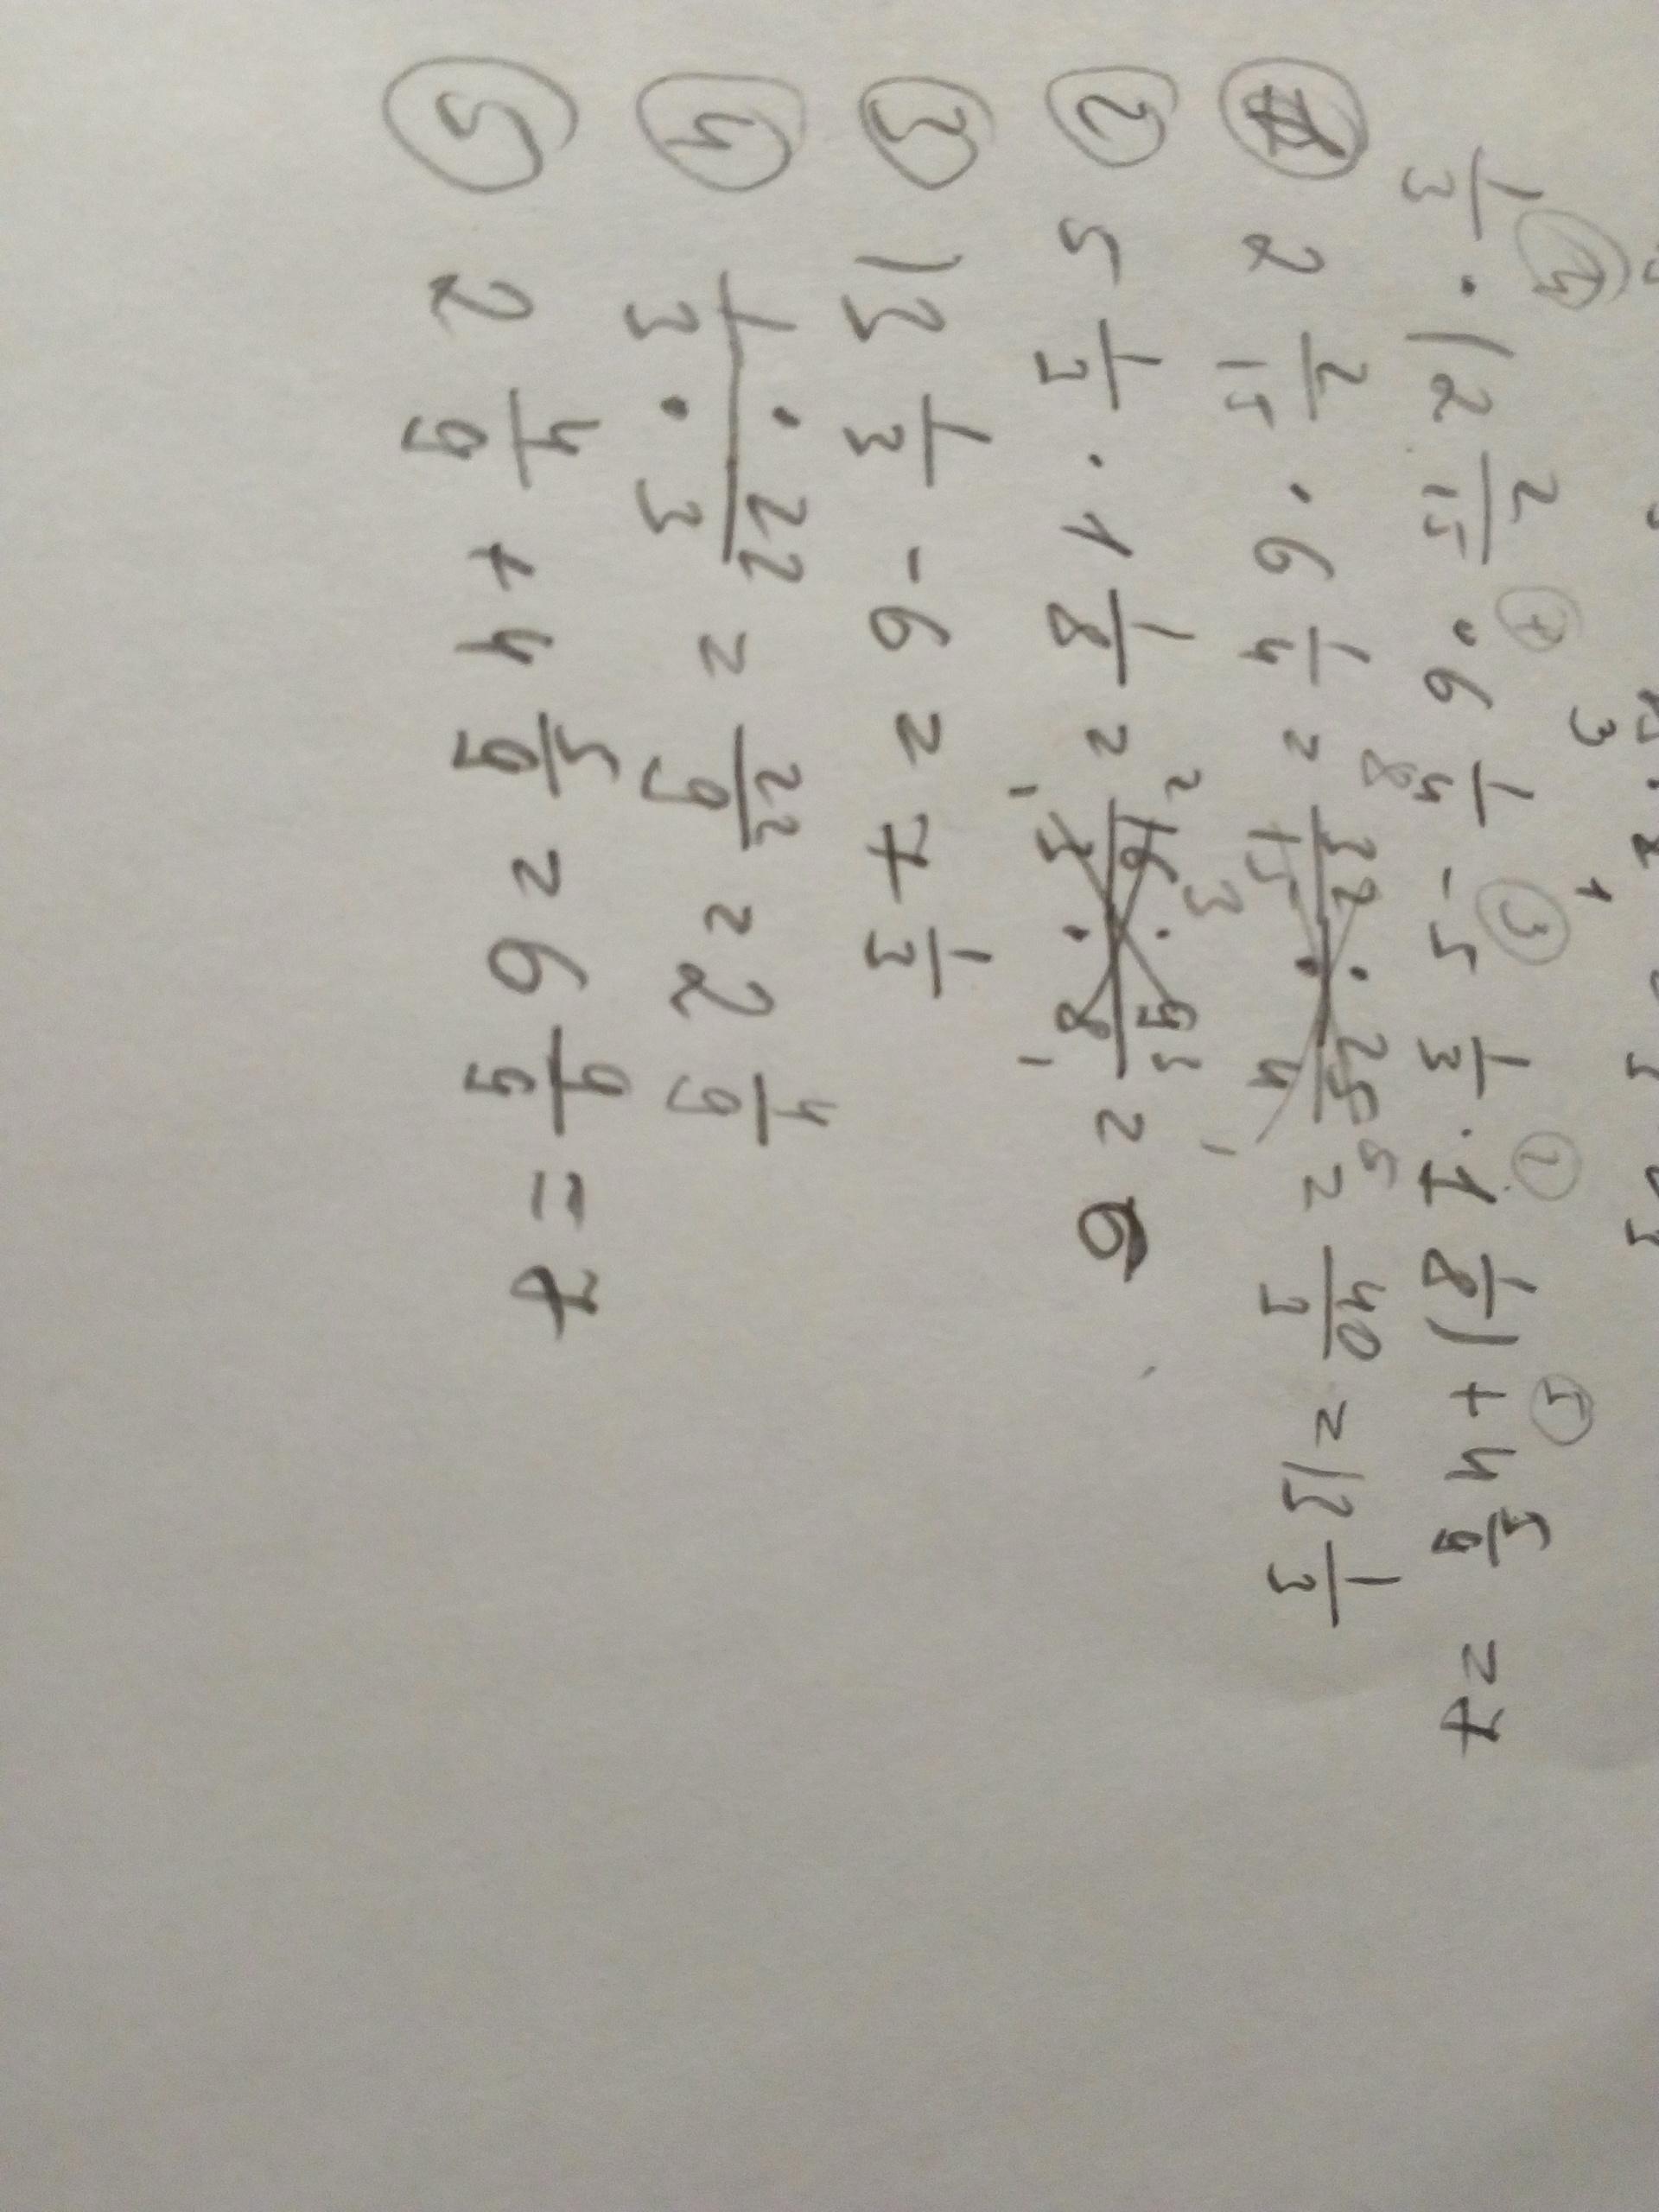 ④ ① ③ ② ⑤
1/3 · (2 2/15 · 6 1/4 - 5 1/3 · 1 1/8) + 4 5/9 = 7
① 2 2/15 · 6 1/4 = 32/15 · 25/4 = 40/3 = 13 1/3
② 5 1/3 · 1 1/8 = 16/3 · 9/8 = 6
③ 13 1/3 - 6 = 7 1/3
④ 1 · 22/3 · 3 = 22/9 = 2 4/9
⑤ 2 4/9 + 4 5/9 = 6 9/9 = 7